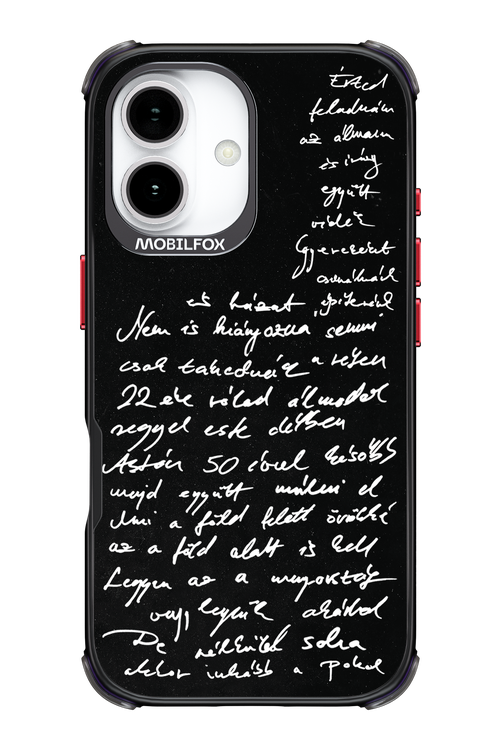 MOBILFOX
Érted
feladnám
az álmaim
és így
együtt
vidék
Gyerekeket
csinálnánk
és házat építenénk
Nem is hiányozna semmi
csak takednánk a
22 éve rólad álmodok
reggel este délben
Aztán 50 évvel később
majd együtt múlni el
Ami a föld felett örökké
az a föld alatt is kell
Legyen az a mennyország
vagy legyünk akárhol
De nélküled soha
akkor inkább a pokol